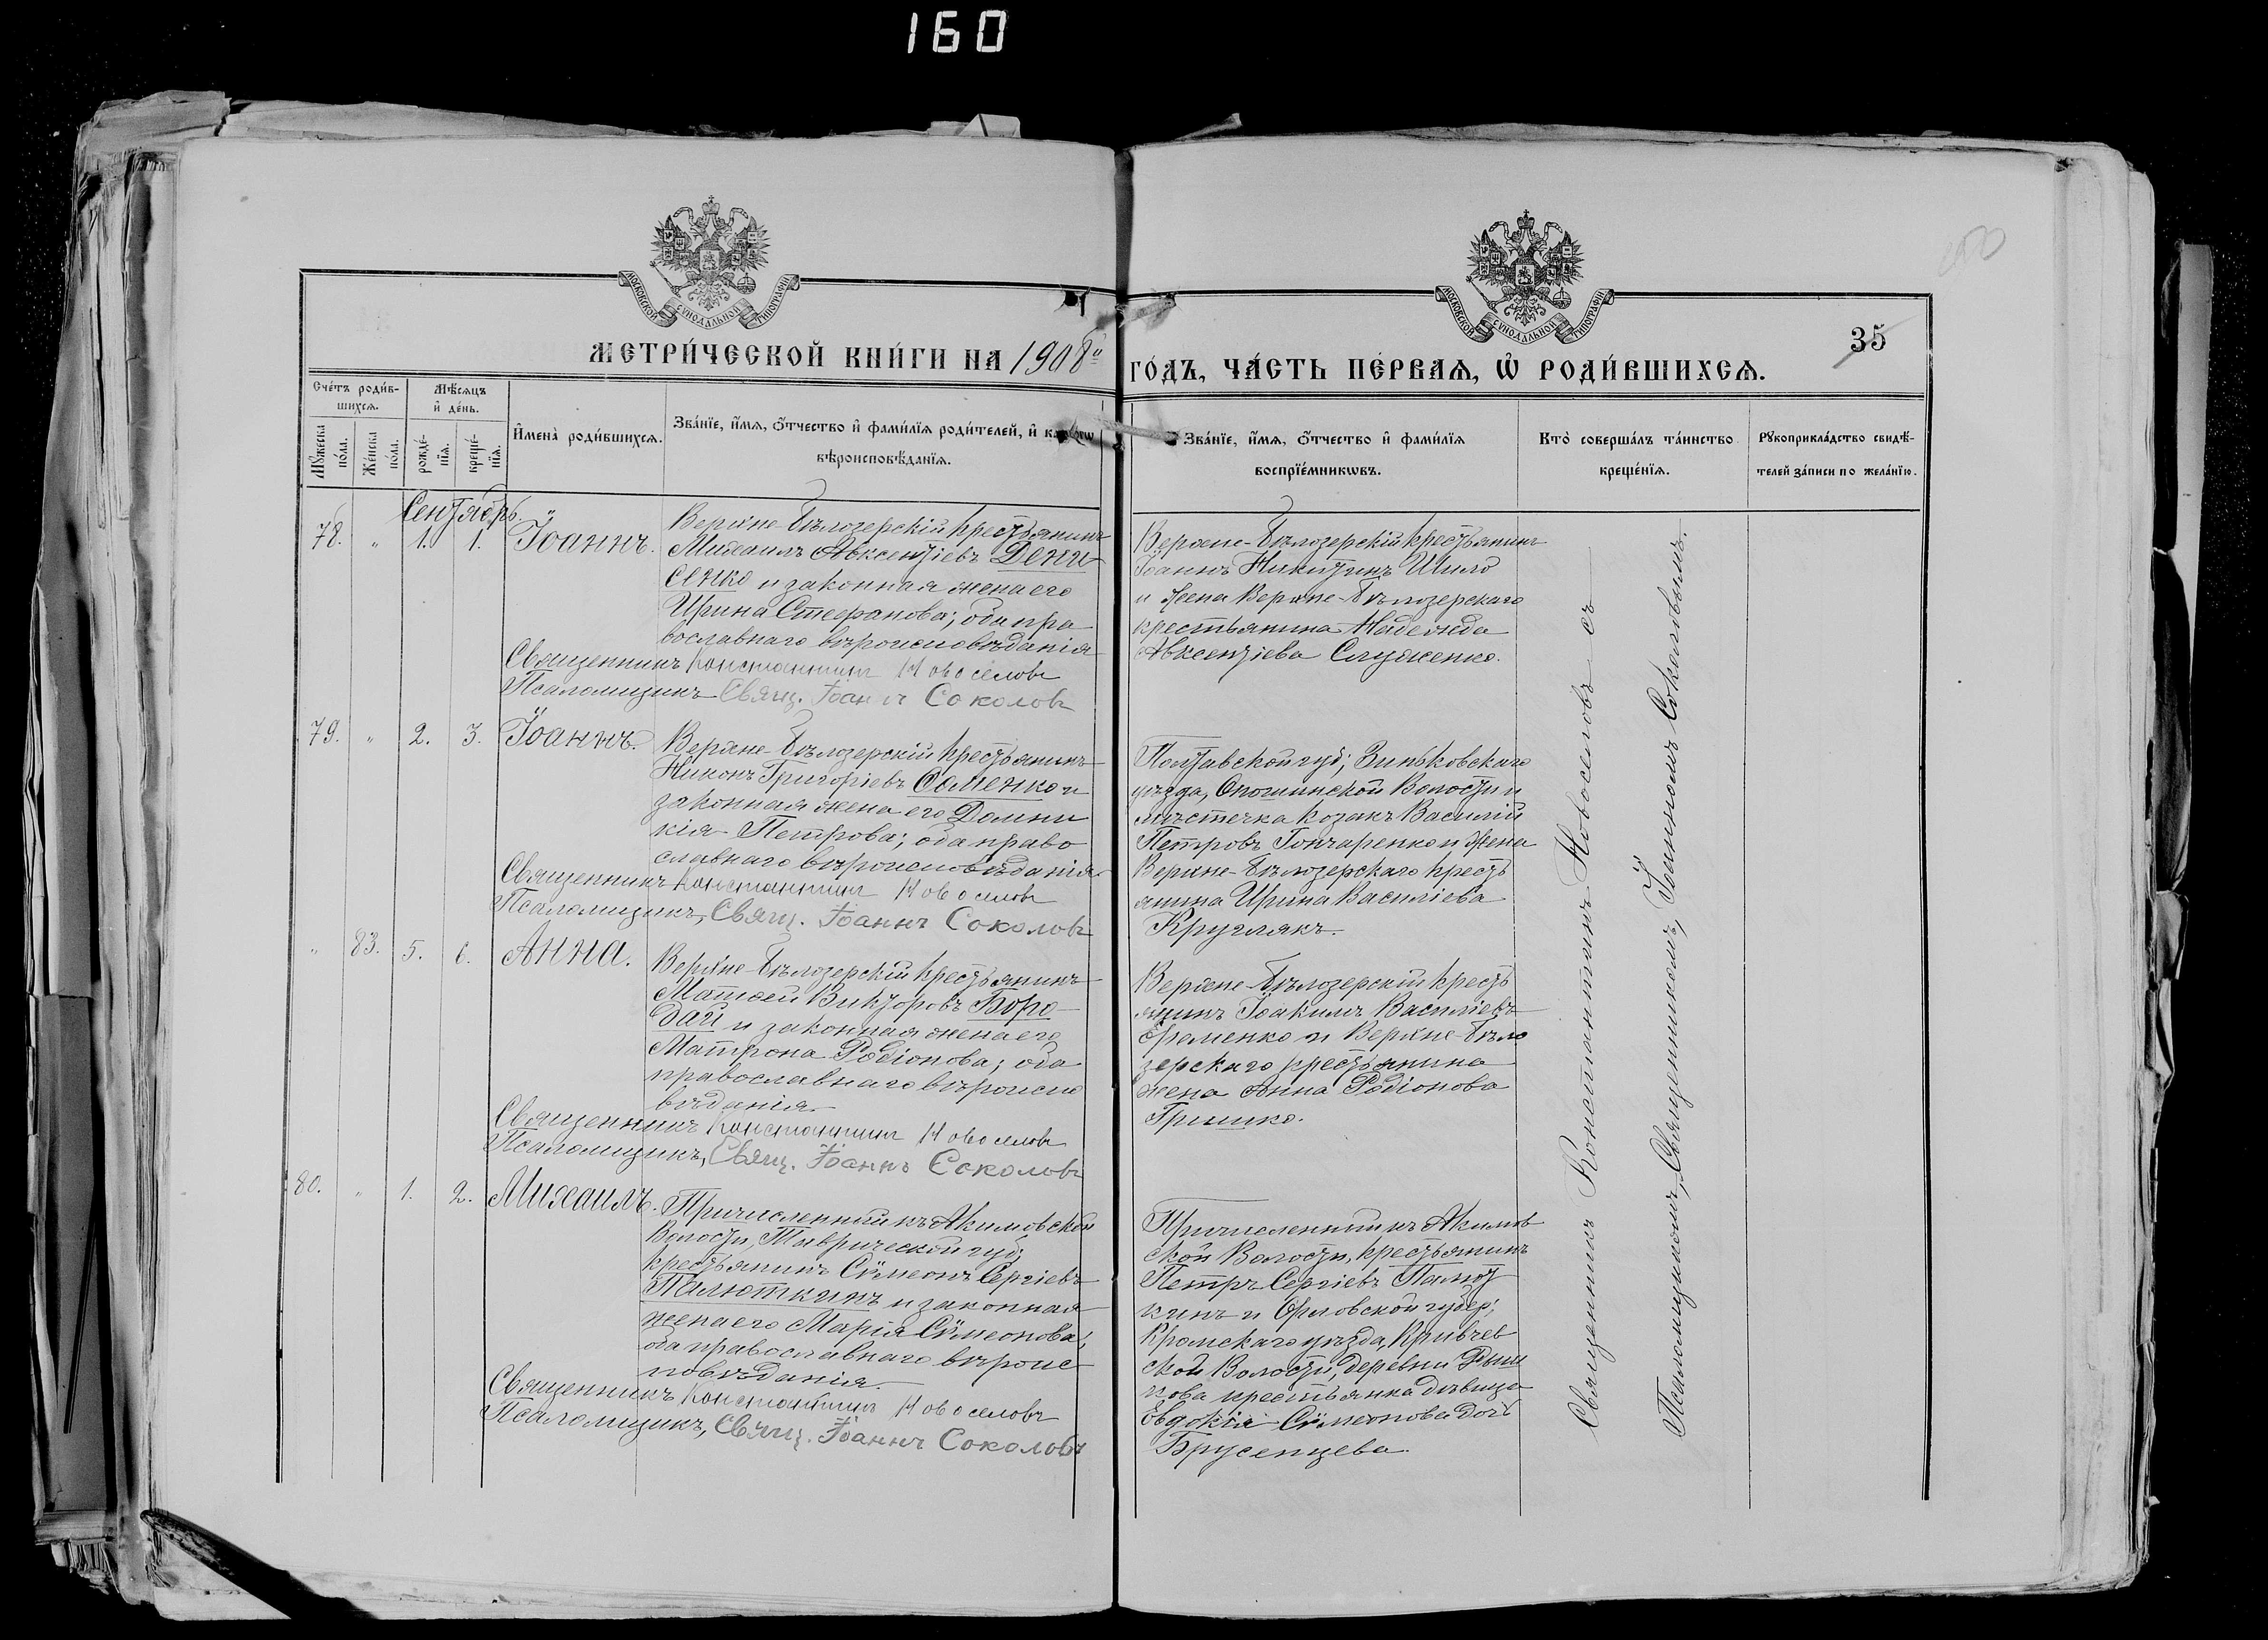 160
МОСКОВСКОЙ СУНОДАЛЬНОЙ ТИПОГРАФІИ
МОСКОВСКОЙ СУНОДАЛЬНОЙ ТИПОГРАФІИ
35
МЕТРИ́ЧЕСКОЙ КНИ́ГИ НА 1908й
ГО́ДЪ, ЧА́СТЬ ПЕ́РВАѦ, Ѡ҆ РОДИ́ВШИХСѦ.
Сче́тъ роди́в-
шихсѧ.
Мѣ́сѧцъ
и҆ де́нь.
Мꙋ́жеска
по́ла.
Же́нска
по́ла.
рожде́-
нїѧ.
креще́-
нїѧ.
И҆мена̀ роди́вшихсѧ.
Зва́нїе, и҆́мѧ, ѻ҆́тчество и҆ фами́лїѧ роди́телей, и҆
вѣроисповѣ́данїѧ.
Зва́нїе, и҆́мѧ, ѻ҆́тчество и҆ фами́лїѧ
воспрїе́мникωвъ.
Кто̀ соверша́лъ та́инство
креще́нїѧ.
Рꙋкоприкла́дство свидѣ́-
телей за́писи по жела́нїю.
Сентябрь.
78. „ 1. 1. Іоаннъ.
Верхне-Бѣлозерскій крестьянинъ
Михаилъ Авксентіевъ Дени-
сенко и законная жена его
Ирина Стефанова; оба пра
вославнаго вѣроисповѣданія
Священникъ Константинъ Новоселовъ
Псаломщикъ Свящ. Іоаннъ Соколовъ
Верхне-Бѣлозерскій крестьянинъ
Іоаннъ Никитинъ Шило
и жена Верхне-Бѣлозерскаго
крестьянина Надежда
Авксентіева Служенко.
79. „ 2. 3. Іоаннъ.
Верхне-Бѣлозерскій крестьянинъ
Никонъ Григоріевъ Саменко и
законная жена его Домни
кія Петрова; оба право
славнаго вѣроисповѣданія
Священникъ Константинъ Новоселовъ
Псаломщикъ, Свящ. Іоаннъ Соколовъ
Полтавской губ; Зиньковскаго
уѣзда, Опошнинской Волости и
мѣстечка козакъ Василій
Петровъ Гончаренко и жена
Верхне-Бѣлозерскаго кресть
янина Ирина Василіева
Круглякъ.
„ 83. 5. 6. Анна.
Верхне-Бѣлозерскій крестьянинъ
Матѳей Викторовъ Боро-
дай и законная жена его
Матрона Родіонова; оба
православнаго вѣроиспо
вѣданія.
Священникъ Константинъ Новоселовъ
Псаломщикъ, Свящ. Іоаннъ Соколовъ
Верхне-Бѣлозерскій кресть
янинъ Іоакимъ Василіевъ
и Верхне-Бѣло
зерскаго крестьянина
жена Анна Родіонова
Гришко.
80. „ 1. 2. Михаилъ.
Причисленный къ Акимовской
Волости, Таврической губ;
крестьянинъ Сѵмеонъ Сергіевъ
Палюткинъ и законная
жена его Марія Сѵмеонова;
оба православнаго вѣроис
повѣданія.
Священникъ Константинъ Новоселовъ
Псаломщикъ, Свящ. Іоаннъ Соколовъ
Причисленный къ Акимов
ской Волости, крестьянинъ
Петръ Сергіевъ Палют
кинъ и Орловской губер;
Кромскаго уѣзда, Кривчев
ской Волости, деревни Рыш
кова крестьянка дѣвица
Евдокія Сѵмеонова дочь
Брусенцева.
Священникъ Константинъ Новоселовъ съ
Псаломщикомъ, Священникомъ, Іоанномъ Соколовымъ.